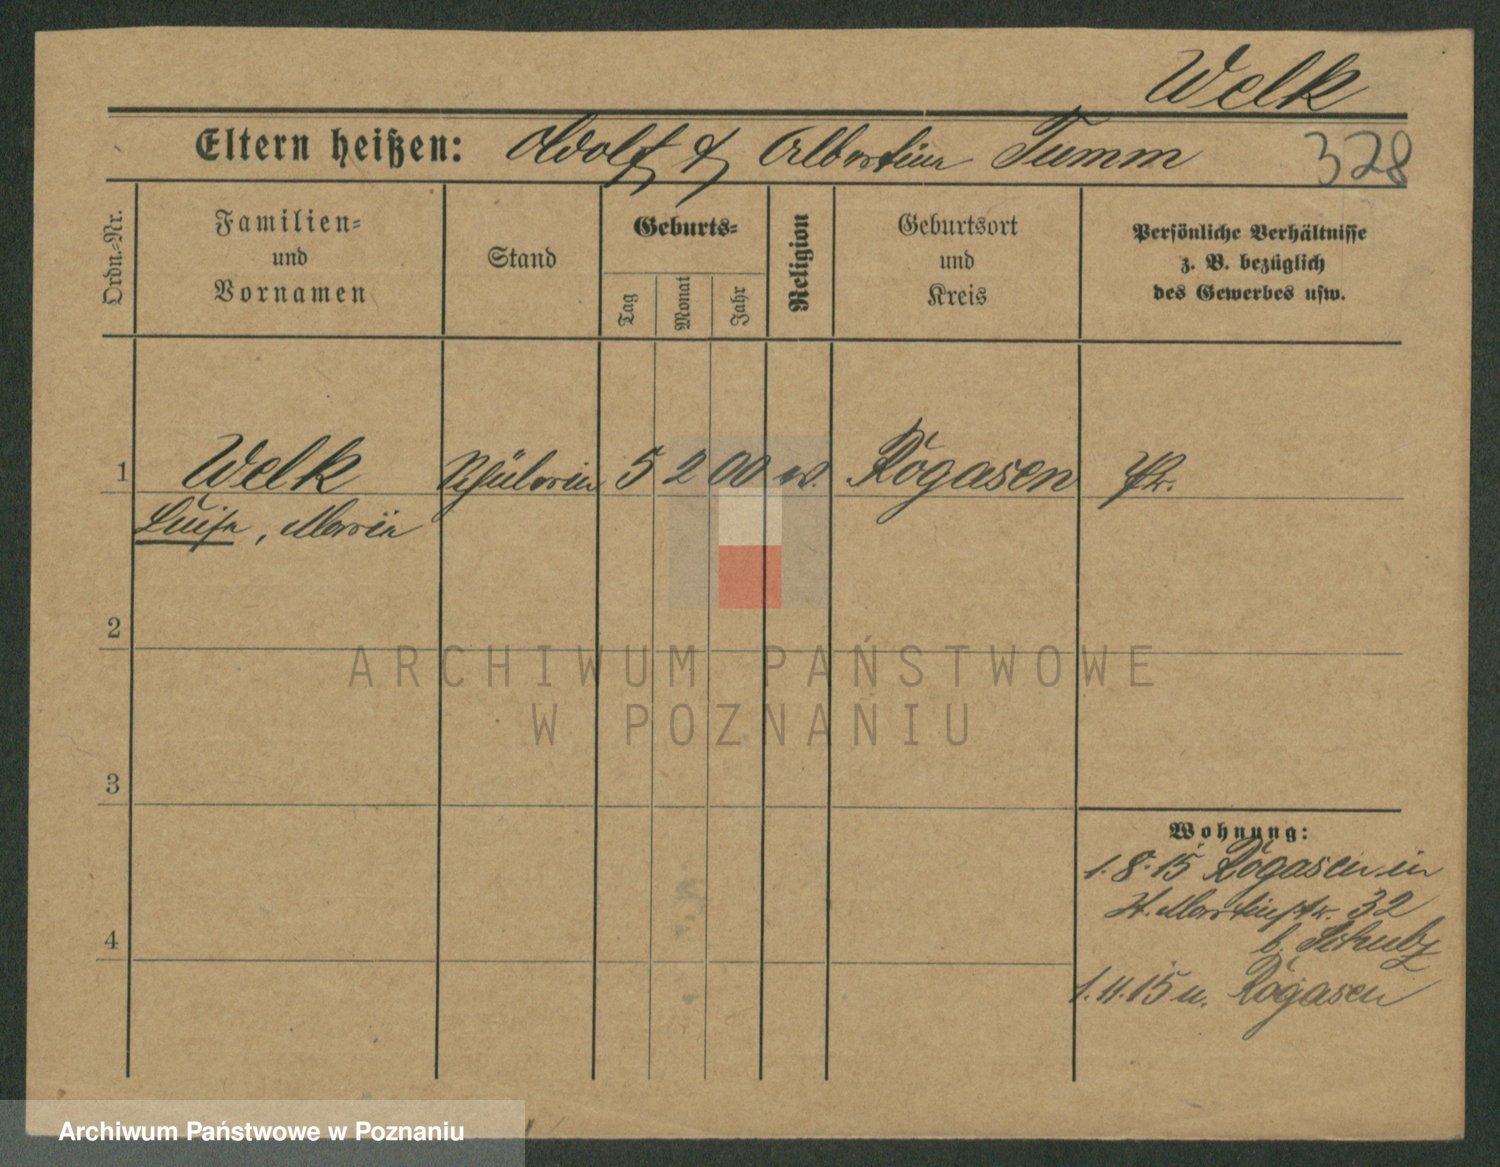 Welk
Eltern heißen: Adolf & Albertine Tumm
328
Ordn.-Nr.
Familien-
und
Vornamen
Stand
Geburts-
Tag
Monat
Jahr
Religion
Geburtsort
und
Kreis
Persönliche Verhältnisse
z. B. bezüglich
des Gewerbes usw.
1 Welk Schülerin 5 2 00 ev. Rogasen Pr.
Luise, Marie
2
ARCHIWUM PAŃSTWOWE
W POZNANIU
3
Wohnung:
1.8.15 Rogasen in
St. Martinstr. 32
b. Schulz
4
1.11.15 n. Rogasen
Archiwum Państwowe w Poznaniu